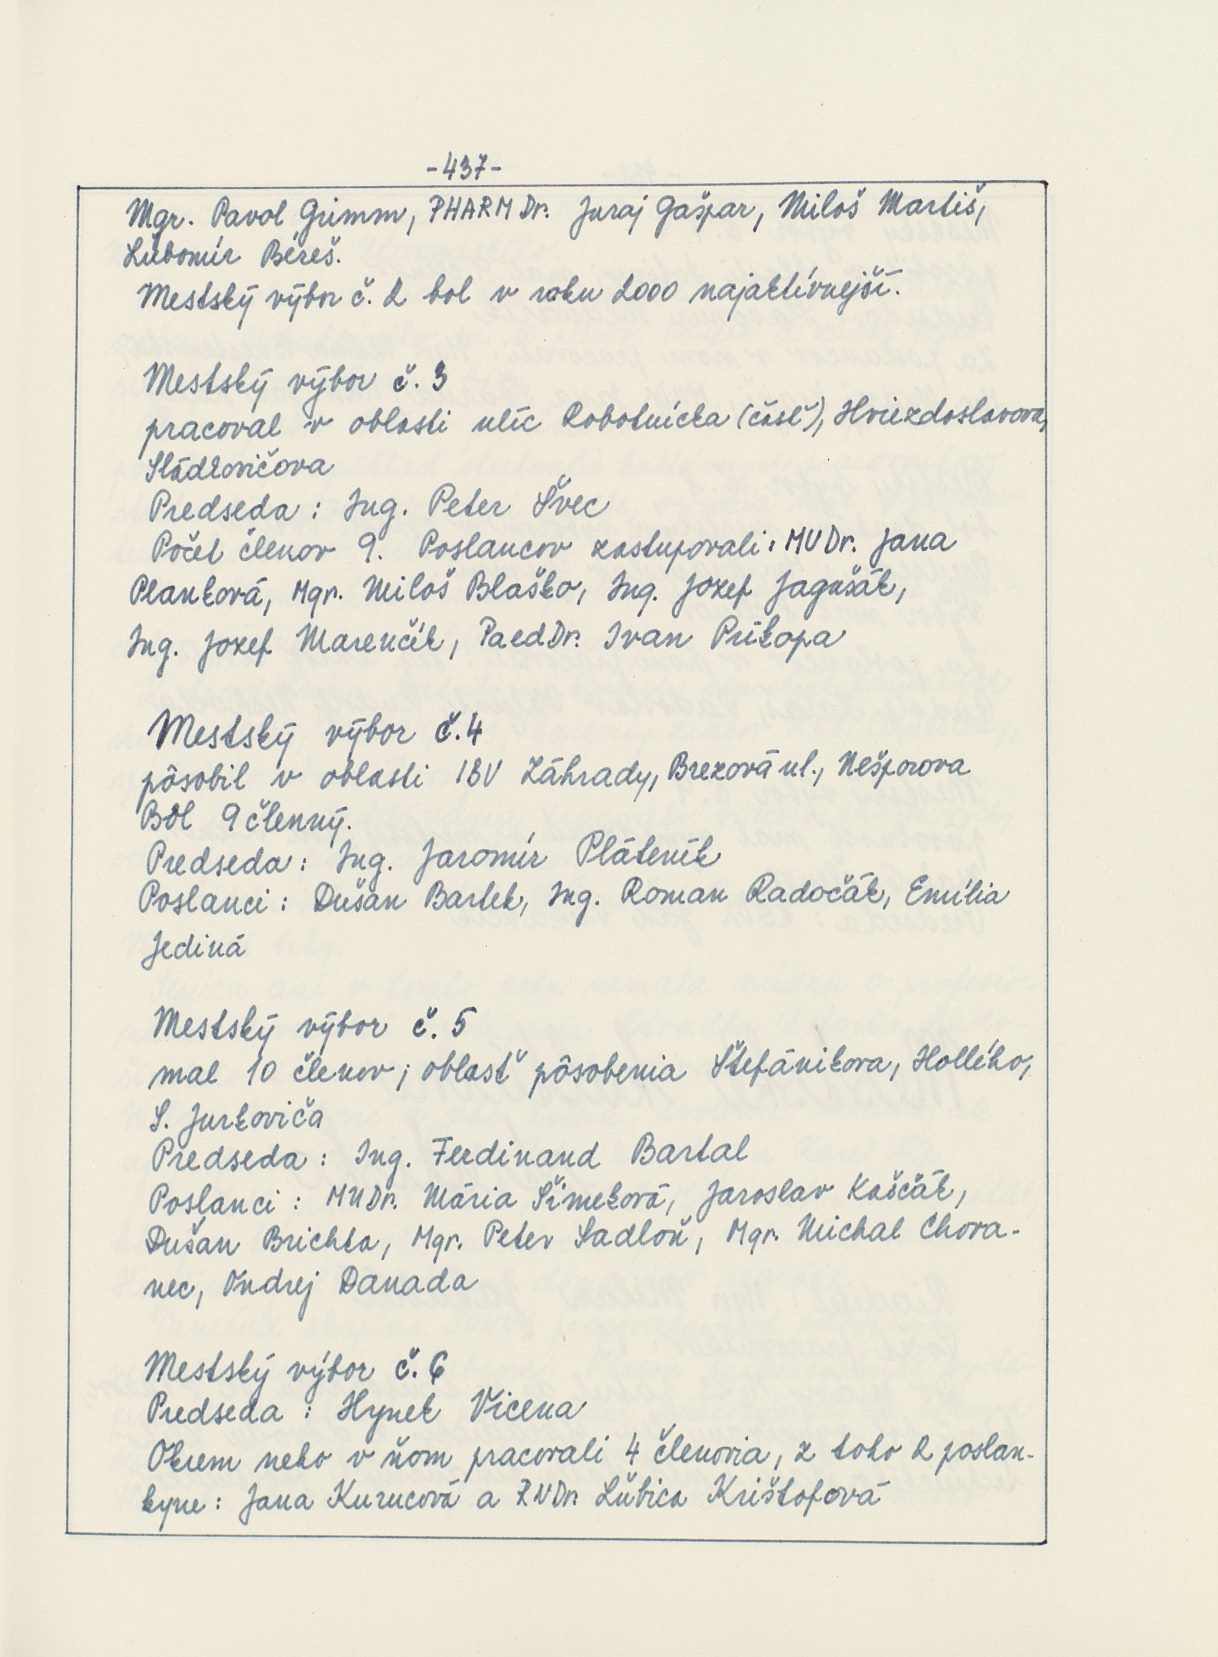 -437-
Mgr. Pavol Grimm, PHARMDr. Juraj Gašpar, Miloš Martiš,
Ľubomír Béreš.
Mestský výbor č. 2 bol v roku 2000 najaktívnejší.
Mestský výbor č. 3
pracoval v oblasti ulíc Robotnícka (časť), Hviezdoslavova,
Sládkovičova
Predseda : Ing. Peter Švec
Počet členov 9. Poslancov zastupovali: MUDr. Jana
Planková, Mgr. Miloš Blaško, Ing. Jozef Jagušák,
Ing. Jozef Marenčík, PaedDr. Ivan Príkopa
Mestský výbor č.4
pôsobil v oblasti IBV Záhrady, Brezová ul., Nešporova
Bol 9 členný.
Predseda : Ing. Jaromír Pláteník
Poslanci : Dušan Bartek, Ing. Roman Radočák, Emília
Jediná
Mestský výbor č. 5
mal 10 členov ; oblasť pôsobenia Štefánikova, Hollého,
S. Jurkoviča
Predseda : Ing. Ferdinand Bartal
Poslanci : MUDr. Mária Šimeková, Jaroslav Kaščák,
Dušan Brichta, Mgr. Peter Sadloň, Mgr. Michal Chora-
nec, Ondrej Danada
Mestský výbor č. 6
Predseda : Hynek Vicena
Okrem neho v ňom pracovali 4 členovia, z toho 2 poslan-
kyne : Jana Kurucová a RNDr. Ľubica Krištofová